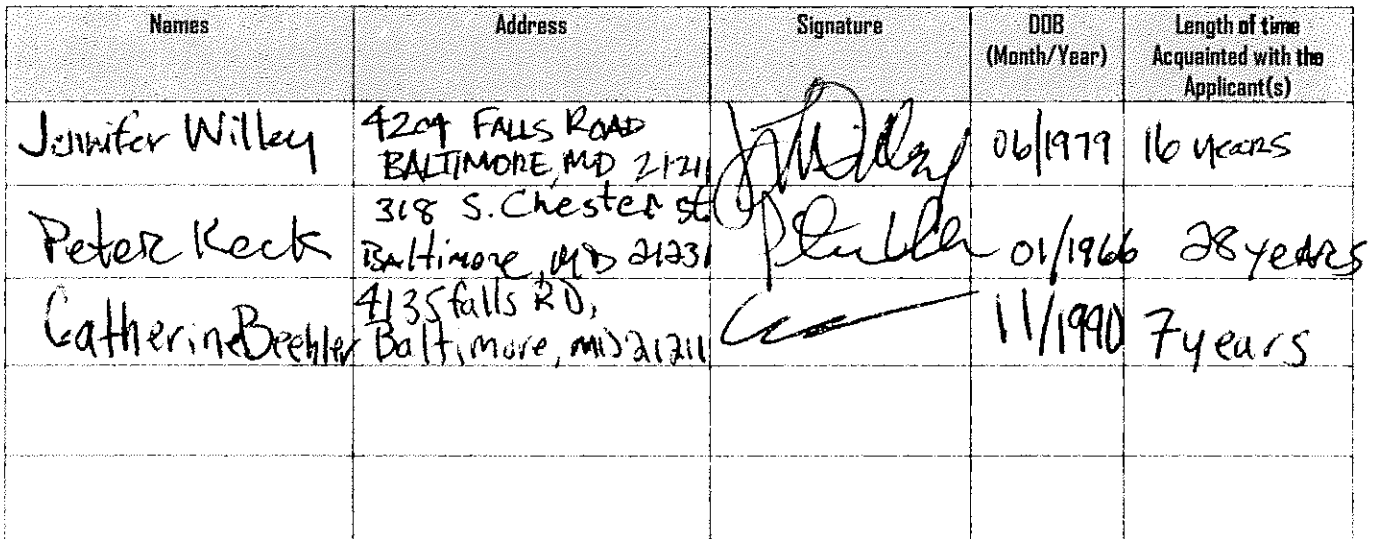 Names Address Signature DOB (Month/Year) Length of time Acquainted with the Applicant(s)
Jennifer Willey 4204 FALLS ROAD BALTIMORE, MD 21211 06/1979 16 years
Peter Keck 318 S. Chester st. Baltimore, MD 21231 01/1966 28 years
Catherine Beehler 4135 falls RD, Baltimore, MD 21211 11/1990 7 years